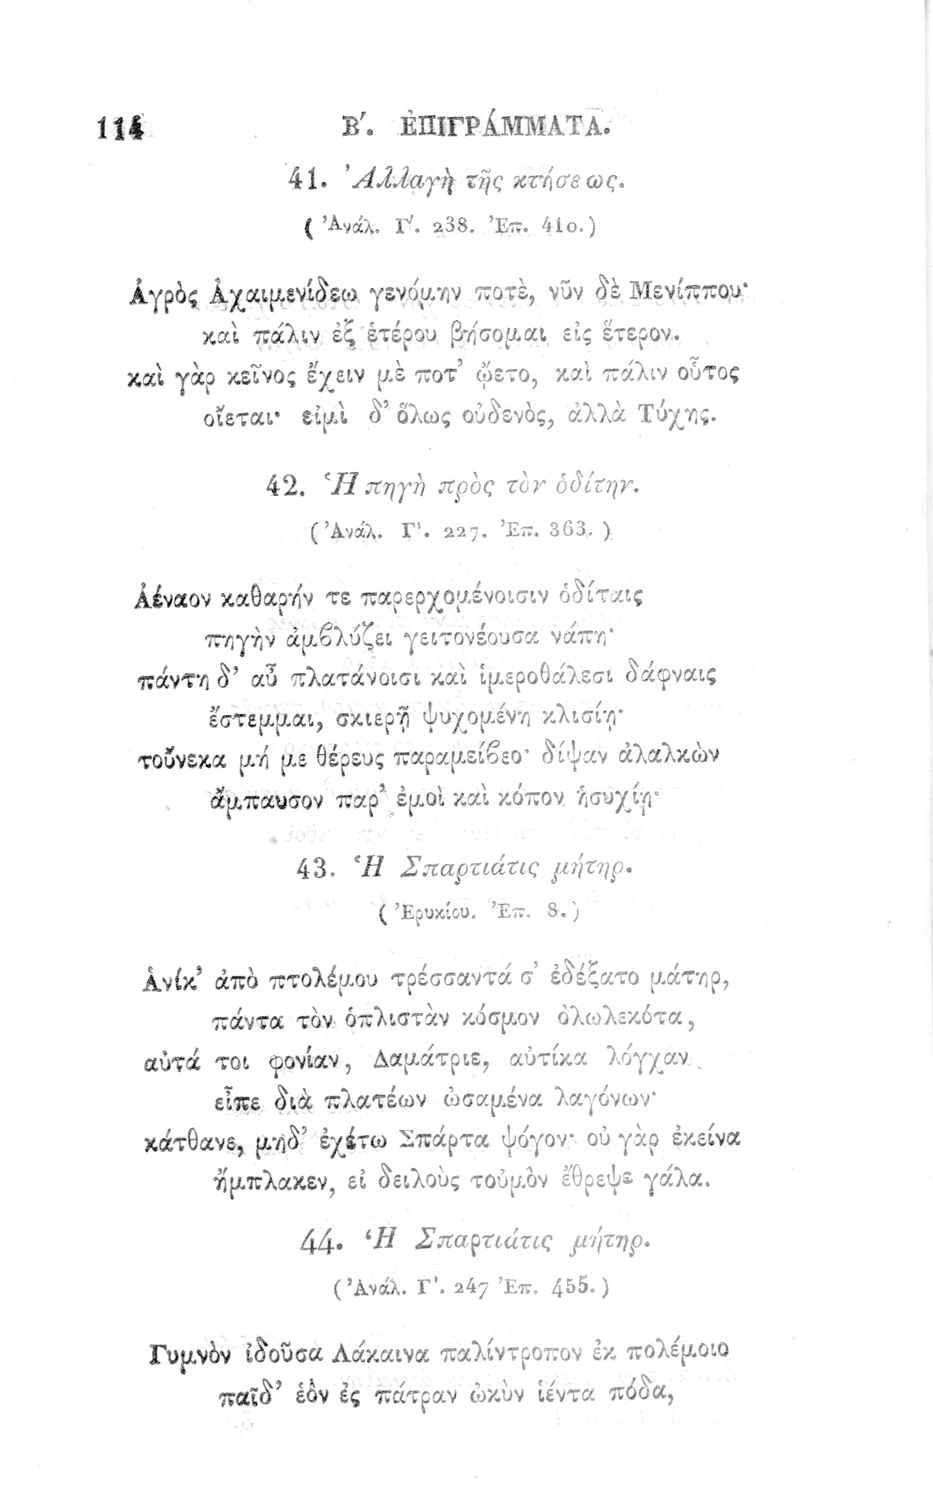 114 Β΄. ἘΠΙΓΡΆΜΜΑΤΑ.
41. Ἀλλαγὴ τῆς κτήσεως.
( Ἀνάλ. Γ΄. 238. Ἐπ. 410.)
Ἀγρὸς Ἀχαιμενίδεω γενόμην ποτὲ, νῦν δὲ Μενίππου·
καὶ πάλιν ἐξ ἑτέρου βήσομαι εἰς ἕτερον.
καὶ γὰρ κεῖνος ἔχειν μὲ ποτ’ ᾤετο, καὶ πάλιν οὗτος
οἴεται· εἰμὶ δ’ ὅλως οὐδενὸς, ἀλλὰ Τύχης.
42. Ἡ πηγὴ πρὸς τὸν ὁδίτην.
( Ἀνάλ. Γ΄. 227. Ἐπ. 363. )
Ἀέναον καθαρήν τε παρερχομένοισιν ὁδίταις
πηγὴν ἀμβλύζει γειτονέουσα νάπη·
πάντη δ’ αὖ πλατάνοισι καὶ ἱμεροθάλεσι δάφναις
ἔστεμμαι, σκιερῇ ψυχομένη κλισίῃ·
τοὔνεκα μή με θέρευς παραμείβεο· δίψαν ἀλαλκὼν
ἄμπαυσον παρ’ ἐμοὶ καὶ κόπον ἡσυχίῃ·
43. Ἡ Σπαρτιάτις μήτηρ.
( Ἐρυκίου. Ἐπ. 8. )
Ἁνίκ’ ἀπὸ πτολέμου τρέσσαντά σ’ ἐδέξατο μάτηρ,
πάντα τὸν ὁπλιστὰν κόσμον ὀλωλεκότα,
αὐτά τοι φονίαν, Δαμάτριε, αὐτίκα λόγχαν
εἶπε διὰ πλατέων ὠσαμένα λαγόνων·
κάτθανε, μηδ’ ἐχέτω Σπάρτα ψόγον· οὐ γὰρ ἐκείνα
ἤμπλακεν, εἰ δειλοὺς τοὐμὸν ἔθρεψε γάλα.
44. Ἡ Σπαρτιάτις μήτηρ.
( Ἀνάλ. Γ΄. 247 Ἐπ. 455. )
Γυμνὸν ἰδοῦσα Λάκαινα παλίντροπον ἐκ πολέμοιο
παῖδ’ ἑὸν ἐς πάτραν ὠκὺν ἱέντα πόδα,